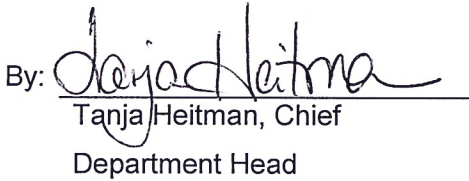 By: Tanja Heitman
Tanja Heitman, Chief
Department Head